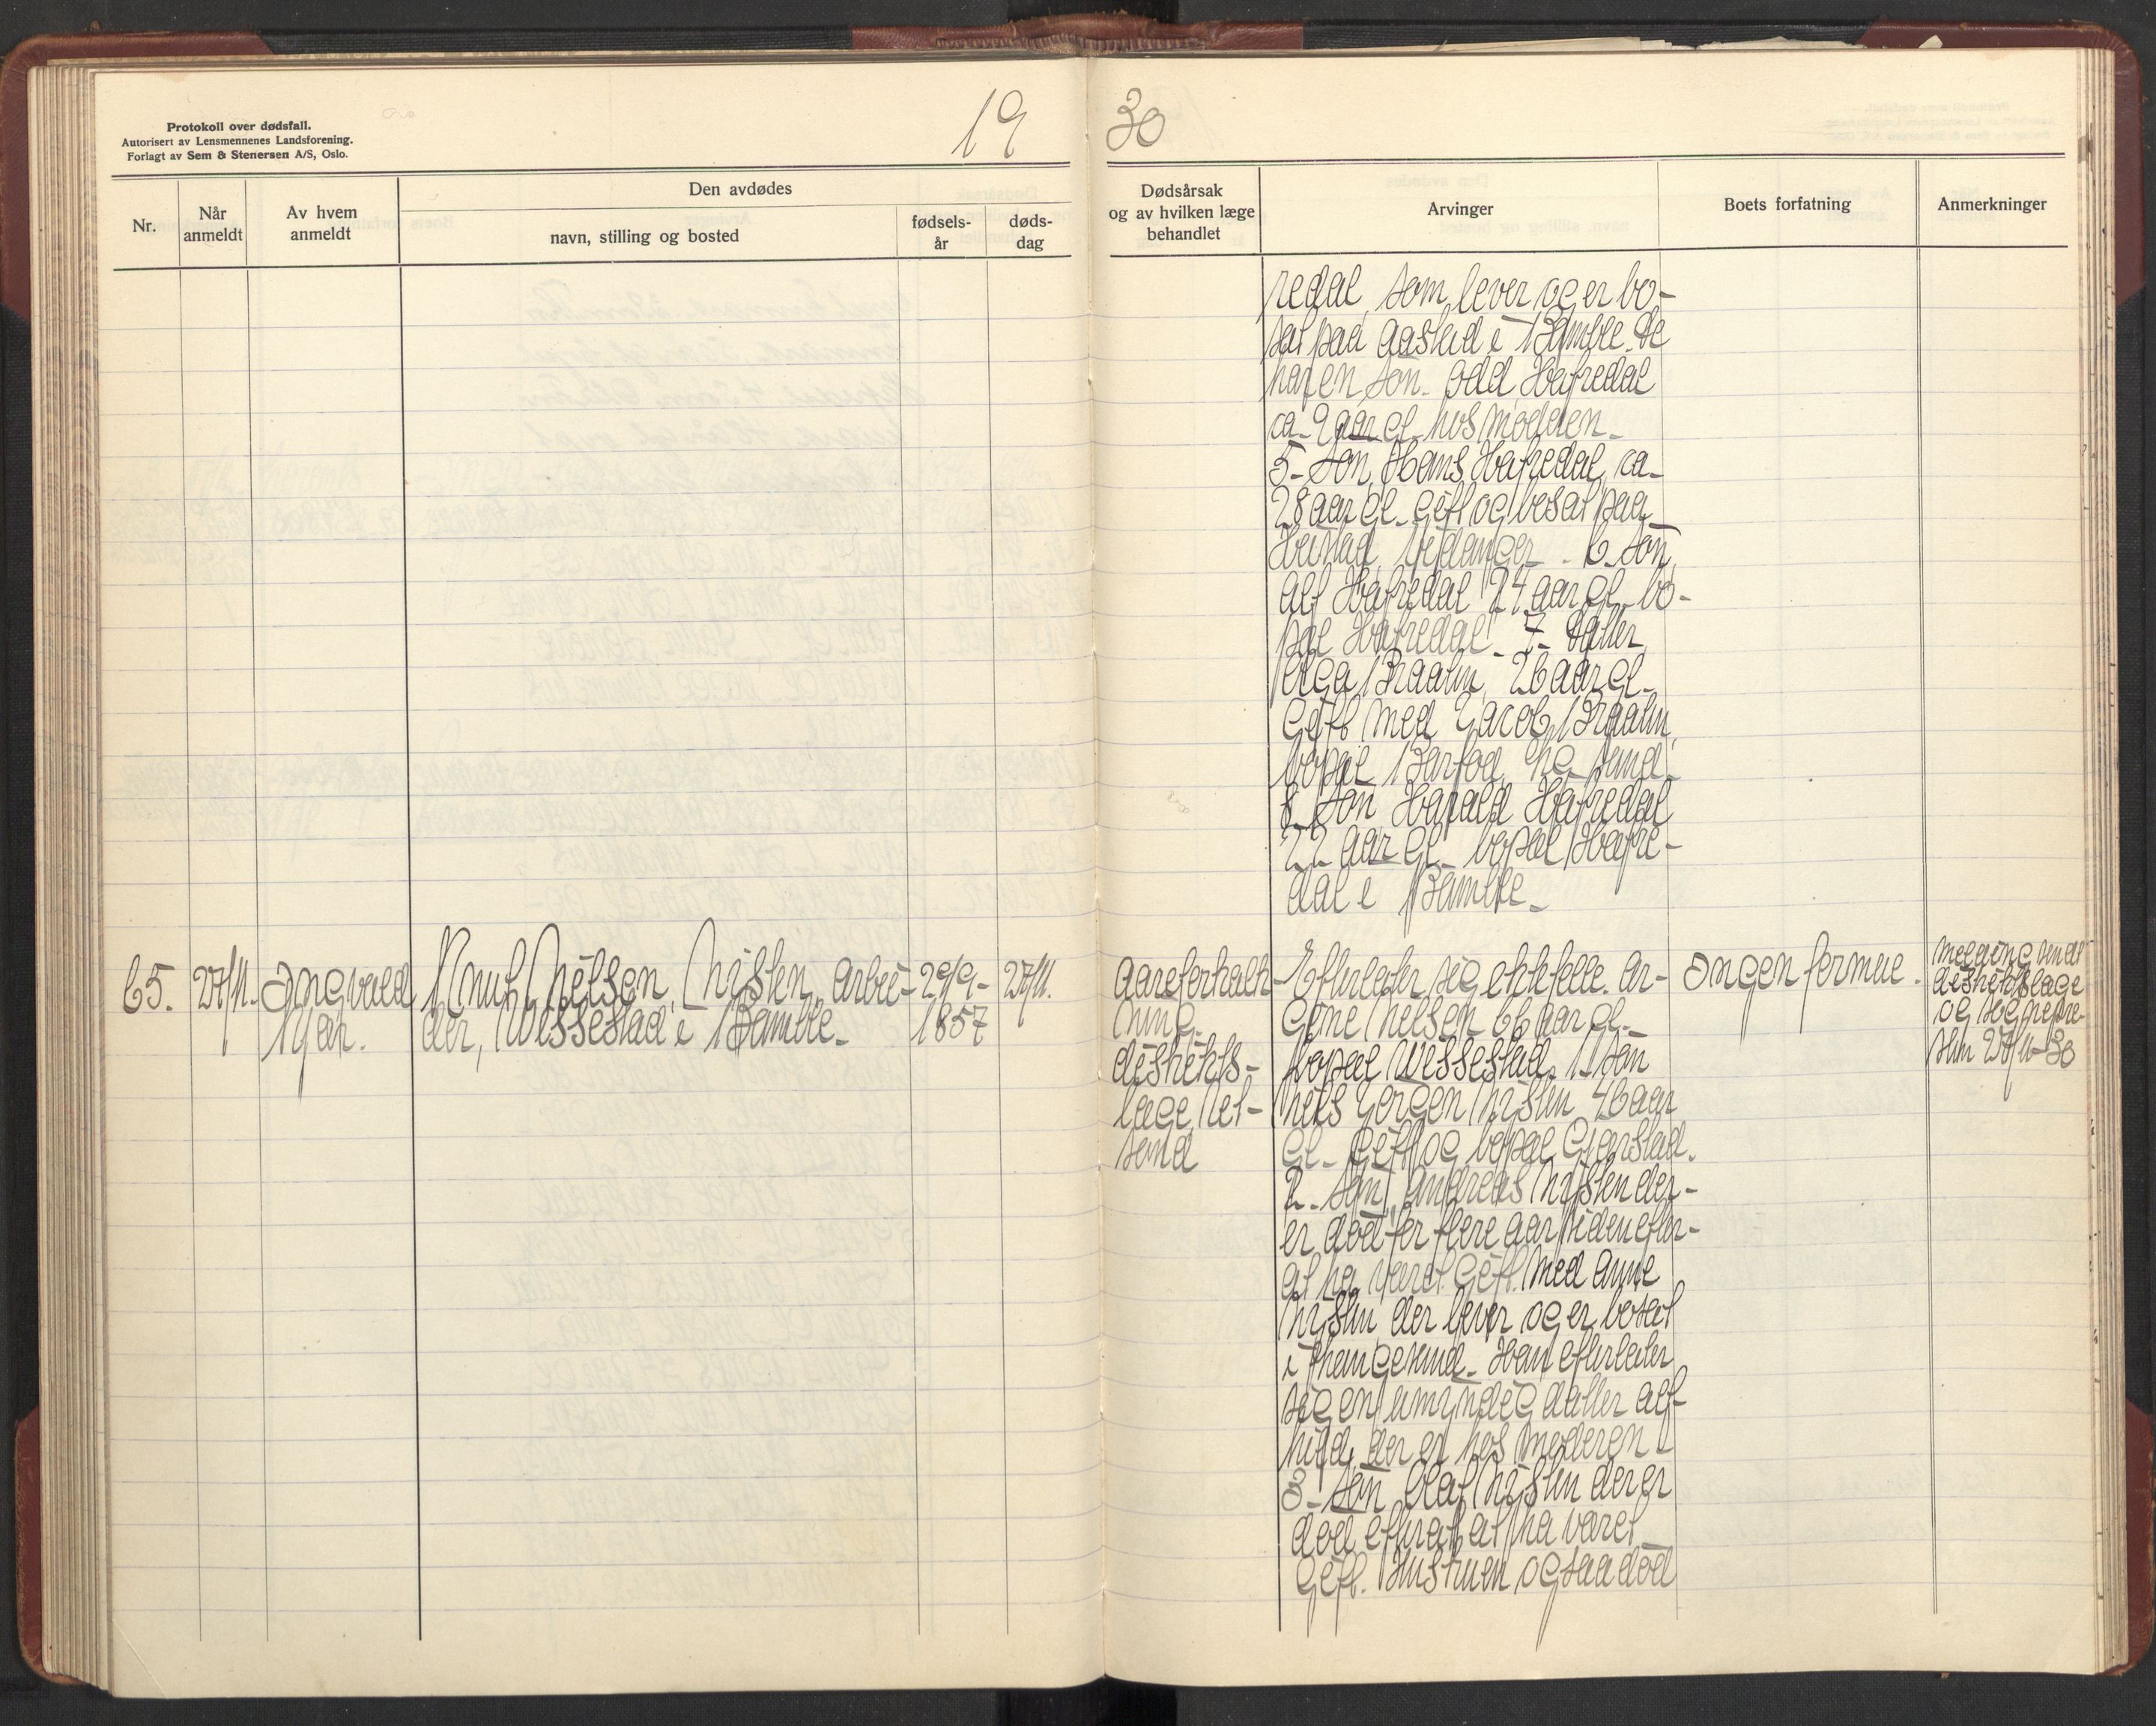 19 30
Protokoll over dødsfall.
Autorisert av Lensmennenes Landsforening.
Forlagt av Sem & Stenersen A/S, Oslo.
Nr.
Når
anmeldt
Av hvem
anmeldt
Den avdødes
navn, stilling og bosted
fødsels-
år
døds-
dag
Dødsårsak
og av hvilken læge
behandlet
Arvinger
Boets forfatning
Anmerkninger
redal, som lever og er bo-
sat paa Aasstad i Bamble. De
har en søn Odd Hafredal
ca. 9 aar gl. hos moderen.
5- Søn, Hans Hafredal, ca-
28 aar gl. gift og bosat paa
Heistad, Eidanger. 6 Søn
Alf Hafredal 24 aar gl. bo-
sat Hafredal. 7- datter
Olga Braatin, 26 aar gl.
gift med Jacob Braatin,
bosat
8. Søn Harald Hafredal
22 aar gl. bosat Hafre-
dal i Bamble.
65.
27/11.
Ingvald
Knut Nilsen, arbei-
der, i Bamble.
29/9-
1857
27/11.
Aareforkalk-
ning.
distrikts-
læge
Efterlater sig ektefelle. Ar-
Nilsen 66 aar gl.
bosat 1. søn
Nils Jørgen 46 aar
gl. gift og bosat
2. søn, Andreas der-
er død for flere aar siden efter
at ha været gift med Anne
der lever og er bosat
i Langesund. Han efterlater
sig en umyndig datter Alf-
hild, der er hos moderen
3- søn Olaf der er
død efterat at ha været
gift. Hustruen ogsaa død
Ingen formue.
Melding sendt
distriktslæge
og
27/11-30